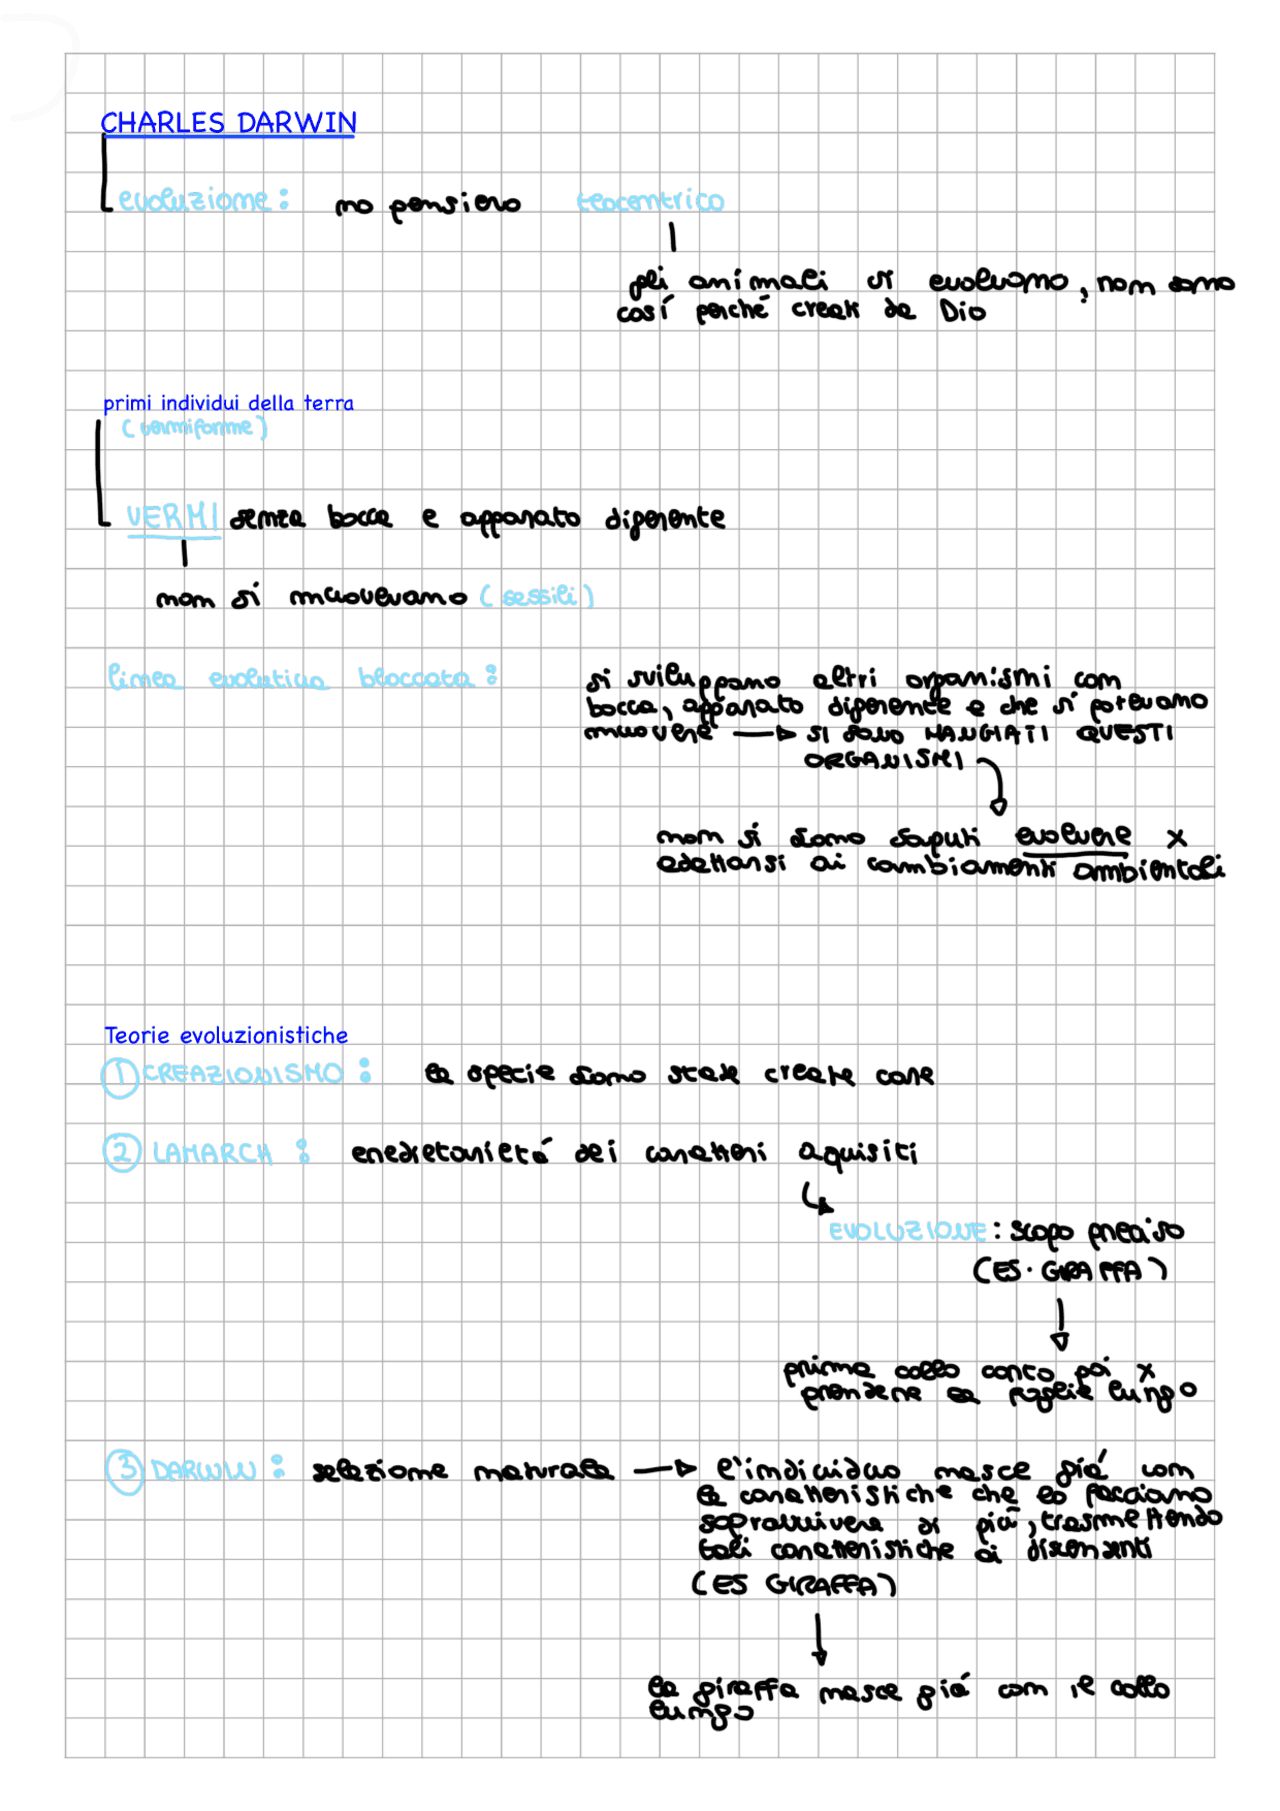 CHARLES DARWIN
evoluzione: no pensiero teocentrico
gli animali si evolvono, non sono
così perché creati da Dio
primi individui della terra
(vermiforme)
VERMI senza bocca e apparato digerente
non si muovevano (sessili)
linea evolutiva bloccata:
si sviluppano altri organismi con
bocca, apparato digerente e che si potevano
muovere → SI SONO MANGIATI QUESTI
ORGANISMI
non si siamo saputi evolvere x
adattarsi ai cambiamenti ambientali
Teorie evoluzionistiche
① CREAZIONISMO: le specie siamo state create
② LAMARCH: eneditarietà dei caratteri aquisiti
EVOLUZIONE: scopo preciso
(ES. GIRAFFA)
prima collo corto poi x
prendere le foglie lungo
③ DARWIN: selezione naturale → l'individuo nasce già con
le caratteristiche che lo facciamo
sopravvivere di più, trasmettendo
tali caratteristiche ai discendenti
(ES GIRAFFA)
la giraffa nasce già con il collo
lungo